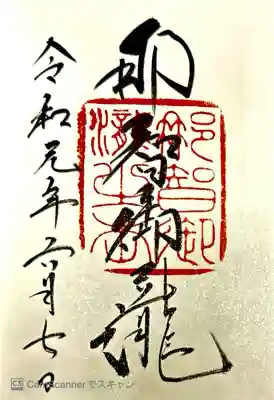 那智御瀧
令和元年六月七日
CS CamScanner でスキャン